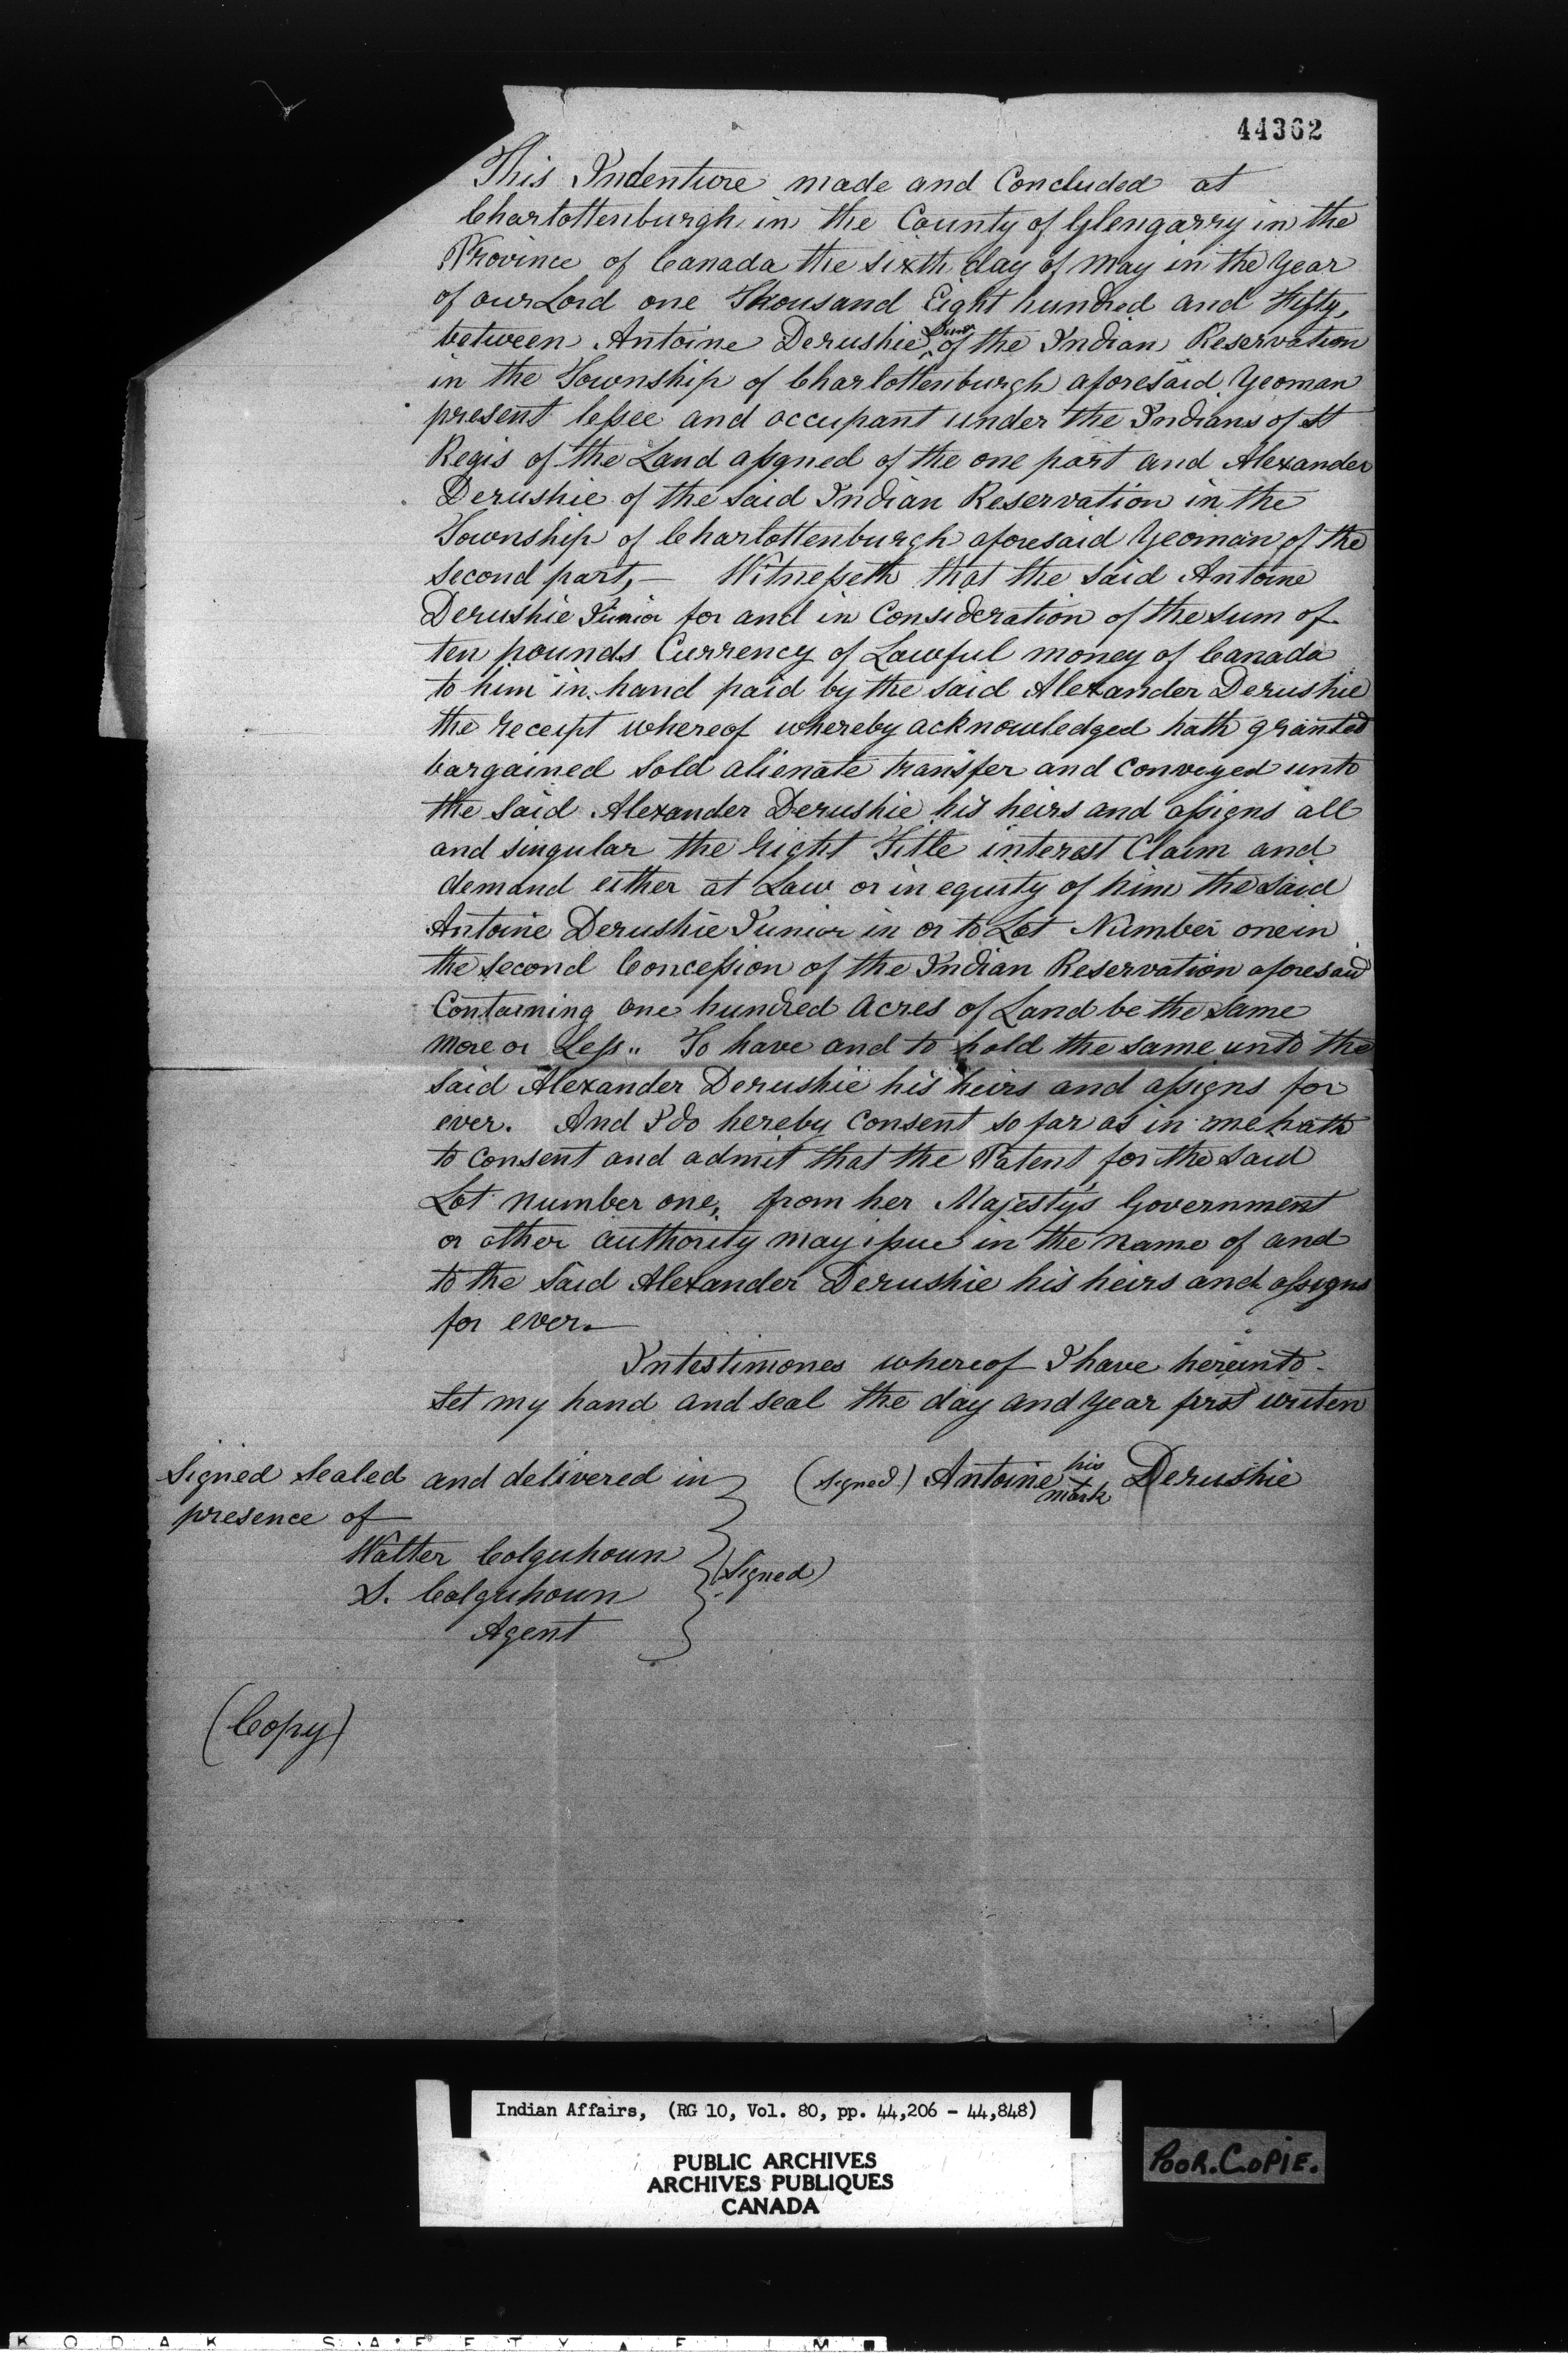 44362
This Indenture made and Concluded at
Charlottenburgh in the County of Glengarry in the
Province of Canada the sixth day of May in the Year
of our Lord one Thousand Eight hundred and Fifty,
between Antoine Derushie Junr of the Indian Reservation
in the Township of Charlottenburgh aforesaid Yeoman
present lessee and occupant under the Indians of St
Regis of the Land assgned of the one part and Alexander
Derushie of the said Indian Reservation in the
Township of Charlottenburgh aforesaid Yeoman of the
second part, — Witnesseth that the said Antoine
Derushie Junior for and in Consideration of the sum of
ten pounds Currency of Lawful money of Canada
to him in hand paid by the said Alexander Derushie
the receipt whereof whereby acknowledged hath granted
bargained sold alienate transfer and conveyed unto
the said Alexander Derushie his heirs and assigns all
and singular the right Title interest Claim and
demand either at Law or in equity of him the said
Antoine Derushie Junior in or to Lot Number one in
the second Concession of the Indian Reservation aforesaid
Containing one hundred Acres of Land be the same
more or Less.. To have and to hold the same unto the
said Alexander Derushie his heirs and assigns for
ever. And I do hereby consent so far as in me hath
to consent and admit that the Patent for the said
Lot number one, from her Majesty's Government
or other authority may issue in the name of and
to the said Alexander Derushie his heirs and assigns
for ever.—
Intestimones whereof I have hereunto
set my hand and seal the day and year first writen
Signed Sealed and delivered in
presence of
(signed) Antoine his + mark Derushie
Walter Colquhoun
S. Colquhoun
Agent
(signed)
(Copy)
Indian Affairs, (RG 10, Vol. 80, pp. 44,206 - 44,848)
PUBLIC ARCHIVES
ARCHIVES PUBLIQUES
CANADA
POOR.COPIE.
KODAK SAFETY A FILM